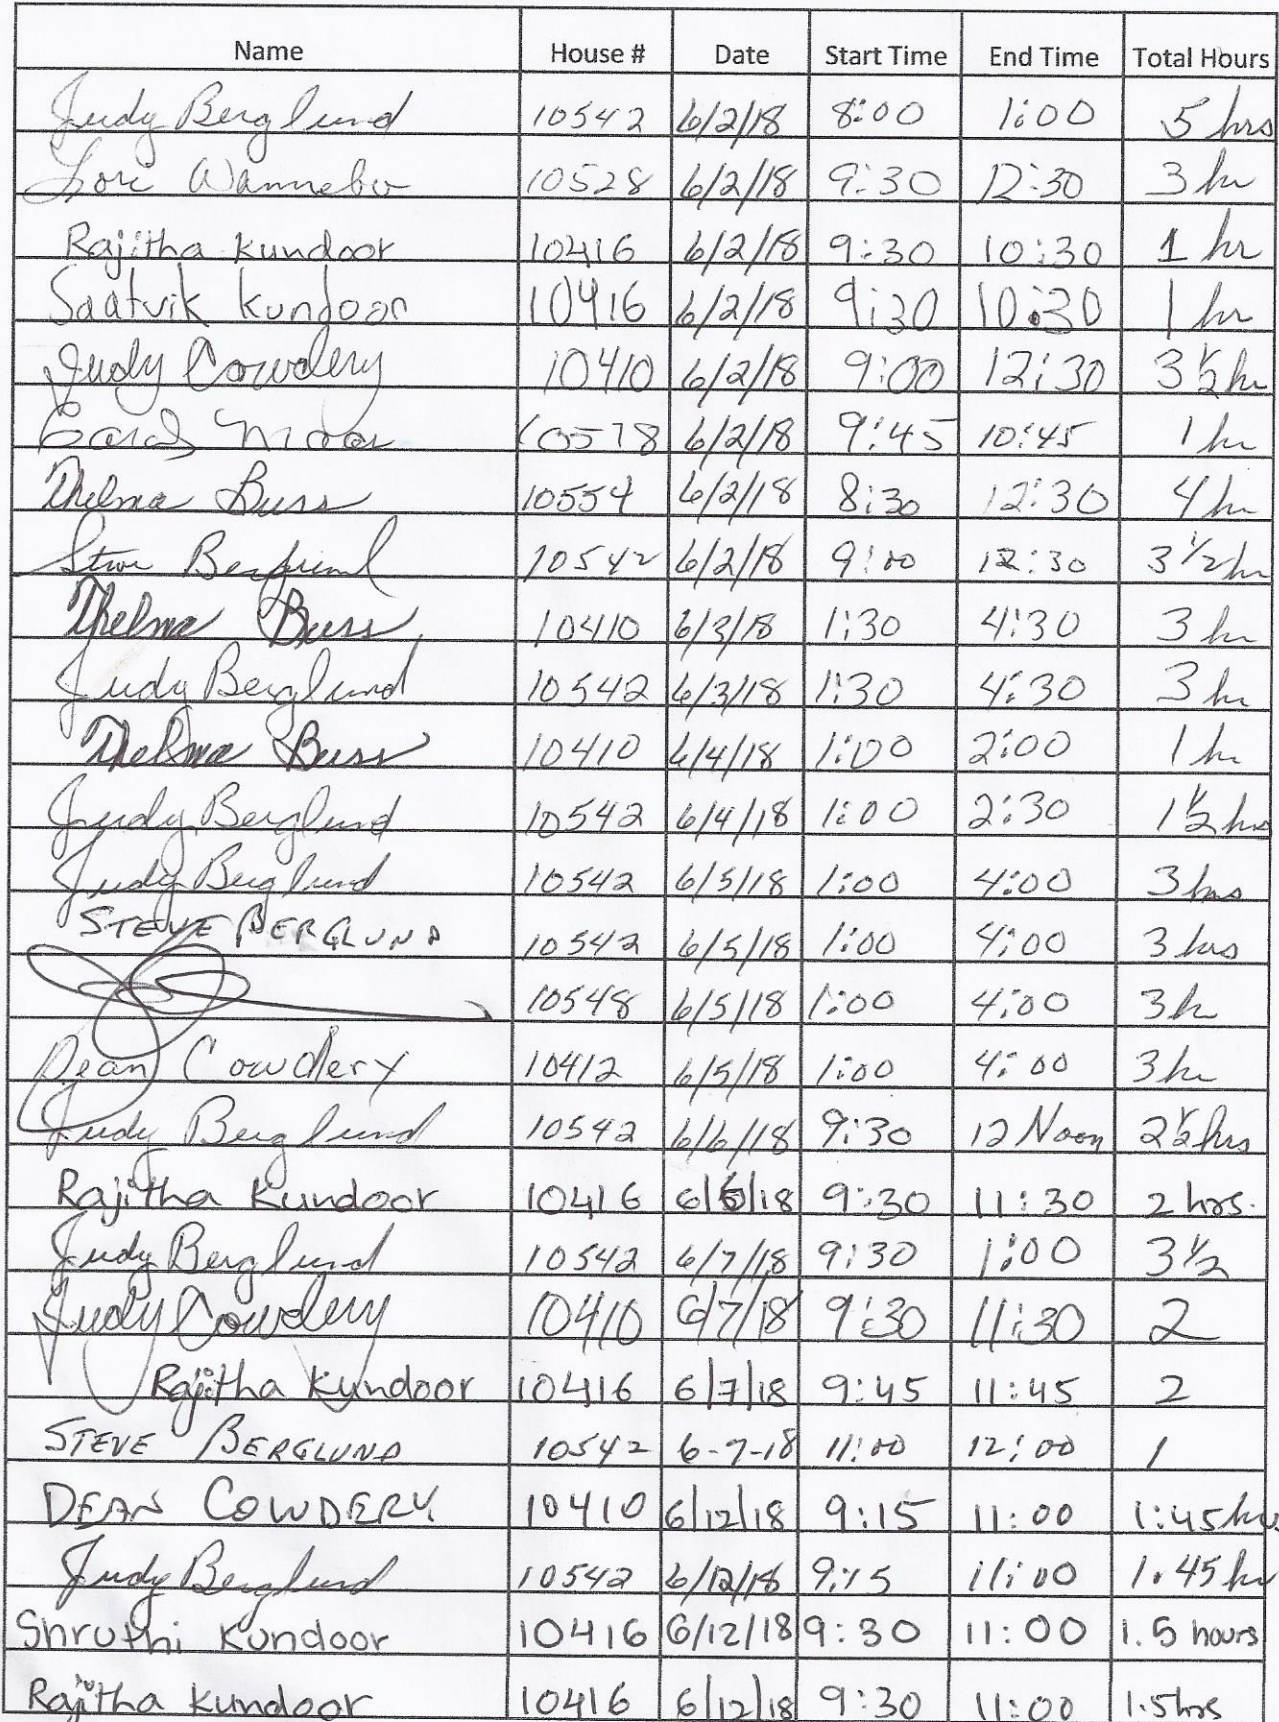 Name House # Date Start Time End Time Total Hours
Judy Berglund 10542 6/2/18 8:00 1:00 5 hrs
Lori Wannebo 10528 6/2/18 9:30 12:30 3 hr
Rajitha Kundoor 10416 6/2/18 9:30 10:30 1 hr
Saatvik Kundoor 10416 6/2/18 9:30 10:30 1 hr
Judy Cowdery 10410 6/2/18 9:00 12:30 3 1/2 hr
Carol 10578 6/2/18 9:45 10:45 1 hr
Thelma Buss 10554 6/2/18 8:30 12:30 4 hr
Steve Berglund 10542 6/2/18 9:00 12:30 3 1/2 hr
Thelma Buss 10410 6/3/18 1:30 4:30 3 hr
Judy Berglund 10542 6/3/18 1:30 4:30 3 hr
Thelma Buss 10410 6/4/18 1:00 2:00 1 hr
Judy Berglund 10542 6/4/18 1:00 2:30 1 1/2 hrs
Judy Berglund 10542 6/5/18 1:00 4:00 3 hrs
STEVE BERGLUND 10542 6/5/18 1:00 4:00 3 hrs
10548 6/5/18 1:00 4:00 3 h
Dean Cowdery 10412 6/5/18 1:00 4:00 3 hr
Judy Berglund 10542 6/6/18 9:30 12 Noon 2 1/2 hrs
Rajitha Kundoor 10416 6/6/18 9:30 11:30 2 hrs.
Judy Berglund 10542 6/7/18 9:30 1:00 3 1/2
Judy Cowdery 10410 6/7/18 9:30 11:30 2
Rajitha Kundoor 10416 6/7/18 9:45 11:45 2
STEVE BERGLUND 10542 6-7-18 11:00 12:00 1
DEAN COWDERY 10410 6/12/18 9:15 11:00 1:45 hrs
Judy Berglund 10542 6/12/18 9:15 11:00 1.45 hr
Shruthi Kundoor 10416 6/12/18 9:30 11:00 1.5 hours
Rajitha Kundoor 10416 6/12/18 9:30 11:00 1.5 hrs